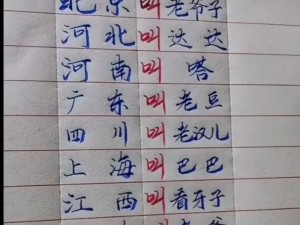 北京叫老爷子
河北叫达达
河南叫嗒
广东叫老豆
四川叫老汉儿
上海叫巴巴
江西叫看牙子
叫老爷